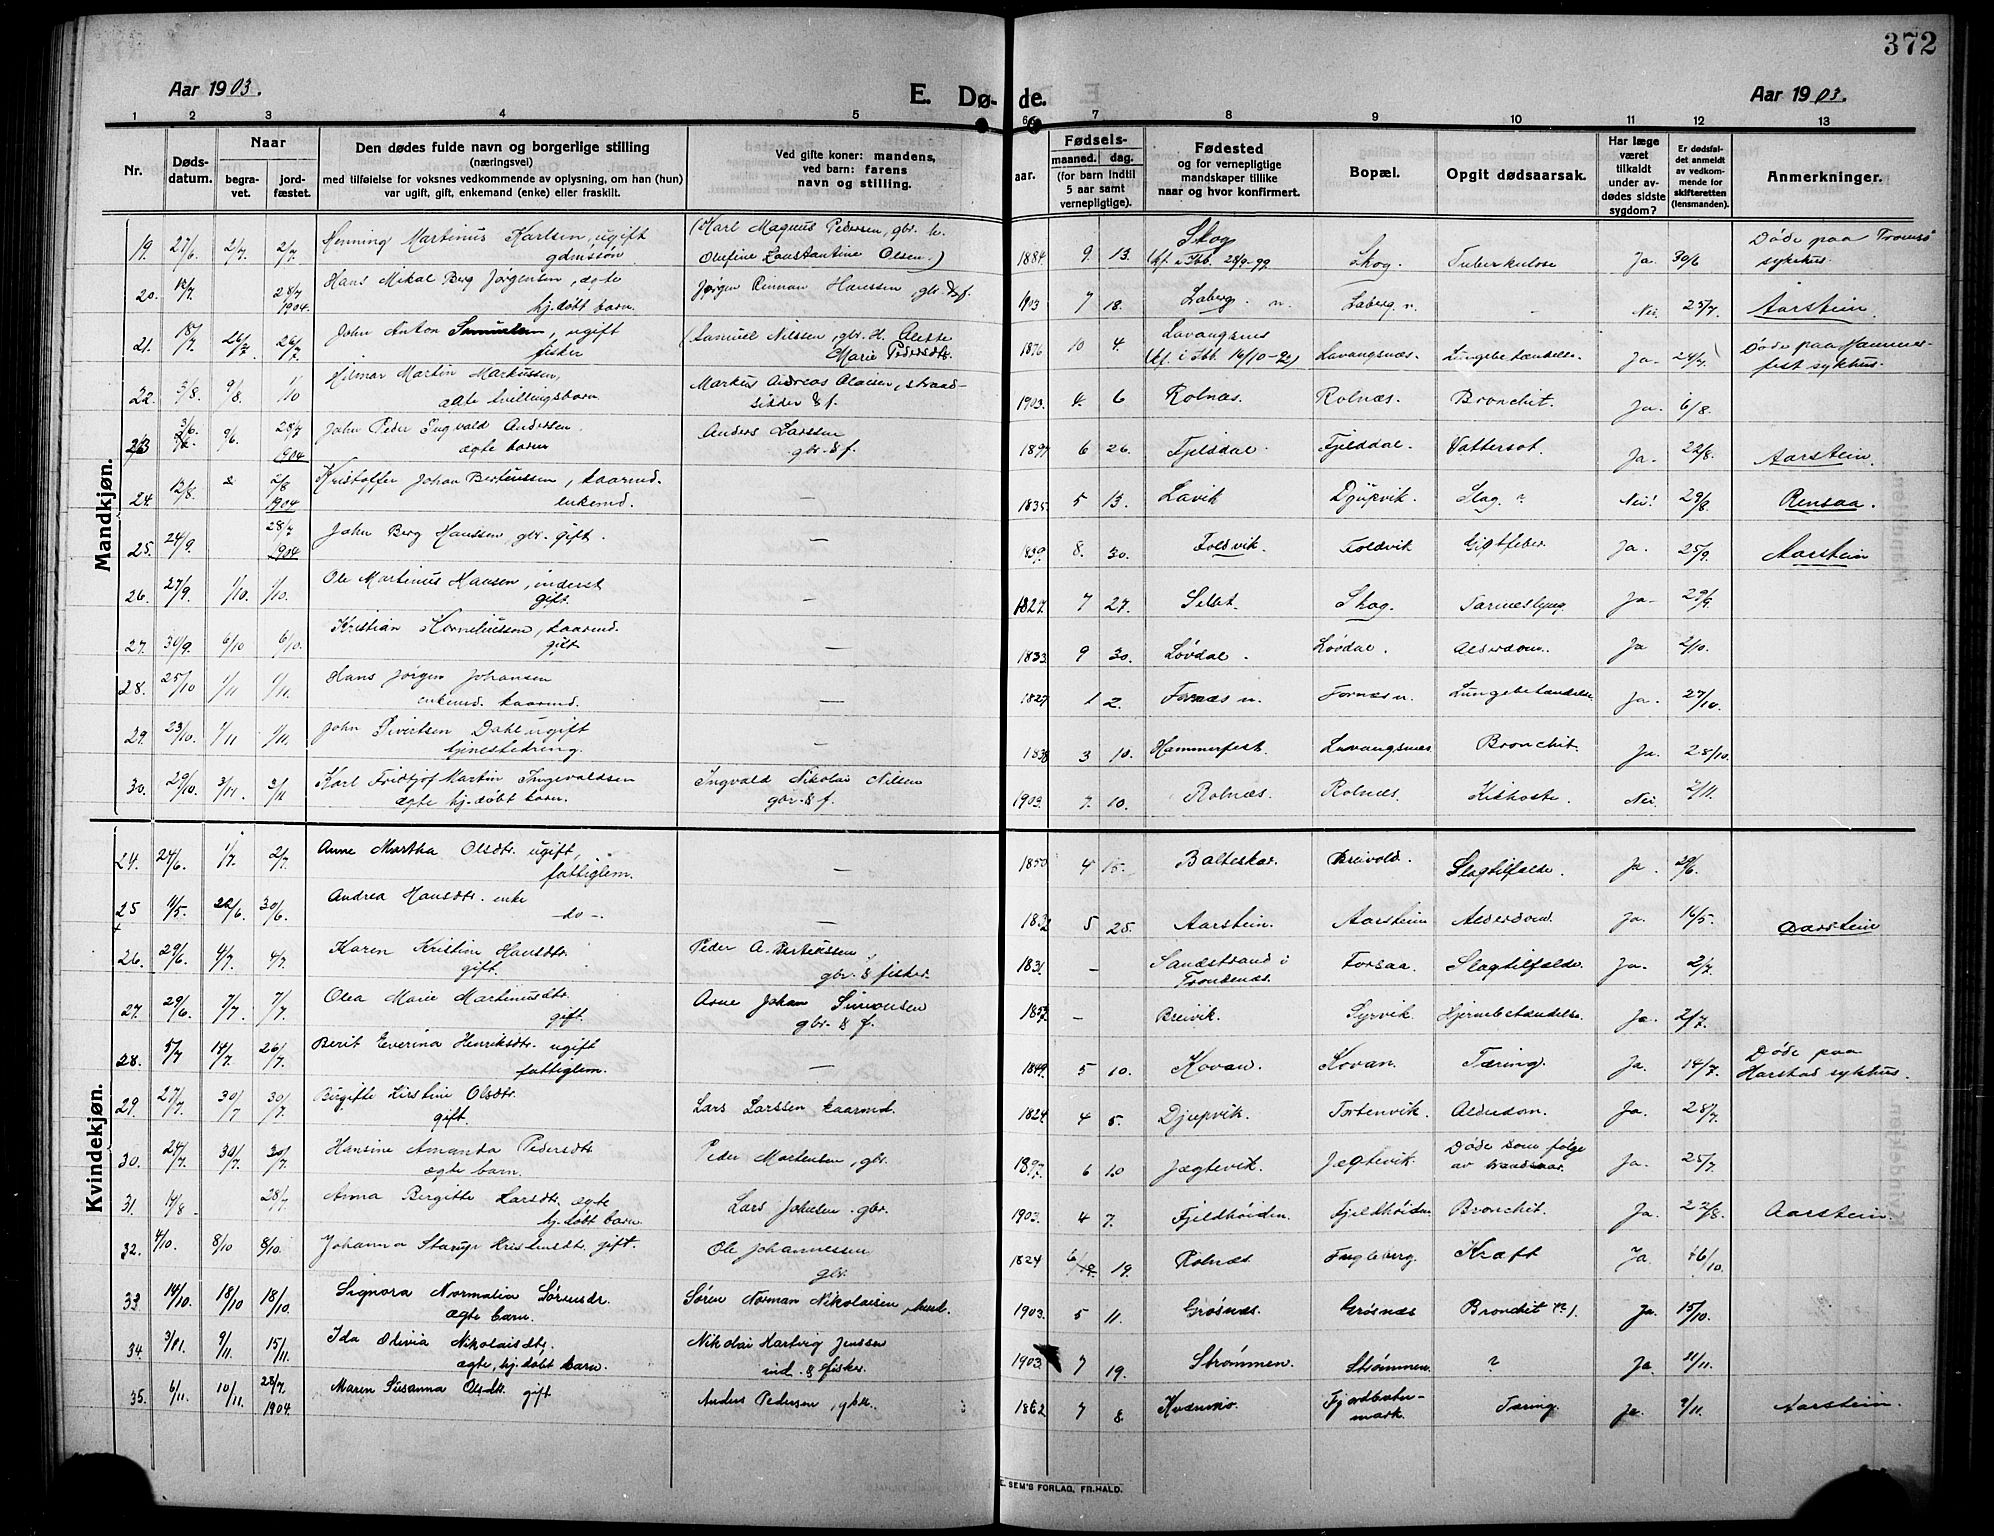 372
Aar 1903.
E. Dø- de.
Aar 1903.
1 2 3 3 4 5 6 7 8 9 10 11 12 13
Nr.
Døds-
datum.
Naar
begra-
vet.
jord-
fæstet.
Den dødes fulde navn og borgerlige stilling
(næringsvei)
med tilføielse for voksnes vedkommende av oplysning, om han (hun)
var ugift, gift, enkemand (enke) eller fraskilt.
Ved gifte koner: mandens,
ved barn: farens
navn og stilling.
Fødsels-
aar.
maaned.
dag.
(for barn indtil
5 aar samt
vernepligtige).
Fødested
og for vernepligtige
mandskaper tillike
naar og hvor konfirmert.
Bopæl.
Opgit dødsaarsak.
Har læge
været
tilkaldt
under av-
dødes sidste
sygdom?
Er dødsfal-
det anmeldt
av vedkom-
mende for
skifteretten
(lensmanden).
Anmerkninger.
Mandkjøn.
19. 27/6 2/7 2/7 Henning Martinus Karlsen, ugift (Karl Magnus Pedersen, gbr. h.
gdmssøn Olufine Konstantine Olsen.)
1884. 9. 13. Skog Skog. Tuberkulose Ja. 30/6 Døde paa Tromsø
(Kf. i Ibb. 24/9-99 sykehus.
20. 28/7 1904. Hans Mikal Berg Jørgensen, ægte Jørgen Hanssen, gbr. & f.
hj.døbt barn.
1903 7 18. Laberg. n. Laberg n. - Nei. 25/7 Aarstein.
21. 18/7 26/7 26/7 John Anton, ugift (Samuel Nilssen, gbr. H. Alette
fisker Marie Pedersdtr.
1876 10 4. Lavangsnes Lavangsnæs. Lungebetændelse. Ja. 24/7 Døde paa Hammer-
fest sykhus.
22. 3/8. 9/8. 1/10 Hilmar Martin Markussen, Markus Andreas Olaisen, strand-
ægte tvillingsbarn. sidder & f.
1903. 4. 6 Rolnæs. Rolnæs. Bronchit. Ja. 6/8.
23 3/6 9/6. 28/7 1904 John Peder Ingvald Andersen. Anders Larssen
ægte barn gbr. & f.
1897 6 26. Fjelddal. Fjelddal. Vattersot. Ja. 22/8. Aarstein.
24. 12/8. 2/8 1904 Kristoffer Johan Berteussen, kaarmd. -
enkemd.
1835. 5 13. Lavik Djupvik. Slag. ? Nei! 29/8. Rensaa.
25. 24/9. 28/7 1904 John Berg Hanssen, gbr. gift. -
1839. 8. 30. Foldvik. Foldvik Gigtfeber Ja. 25/9. Aarstein
26. 27/9. 1/10. 1/10. Ole Martinus Hansen, inderst -
gift.
1827. 7 27. Selset. Skog. Tarmeslyng. Ja - 29/9.
27. 30/9. 6/10 6/10. Kristian Korneliussen, kaarmd. -
gift.
1833. 9 30. Løvdal. Løvdal. Alderdom. Ja 2/10.
28. 25/10 1/11 1/11. Hans Jørgen Johansen -
enkemd. kaarmd.
1827 1 2. Fornæs n. Fornæs n. Lungebetændelse Ja. 27/10.
29. 23/10. 1/11 1/11. John Sivertsen Dahl ugift -
tjenestedreng.
1838 3 10. Hammerfest. Lavangsnæs. Bronchit. Ja 28/10.
30. 29/10. 3/11. 3/11 Karl Fridtjof Martin Ingevaldsen Ingvald Nikolai Nilsen
ægte hj.døbt barn. gbr. & f.
1903. 7. 10. Rolnæs. Rolnæs. Kikhoste. Nei. 2/11.
Kvindekjøn.
24. 24/6. 1/7. 2/7. Anne Martha Olsdtr. ugift, -
fattiglem.
1850 4 15. Balteskar. Breivold. Slagtilfælde. Ja. 29/6.
25 11/5. 22/6. 30/6. Andrea Hansdtr. enke -
-do-.
1832 5 25. Aarstein. Aarstein Alderdom. Ja. 16/5. Aarstein
26. 29/6. 4/7. 4/7. Karen Kristine Hansdtr. Peder A. Berteussen,
gift. gbr. & fisker.
1831. - Sandstrand i Forsaa. Slagtilfælde Ja. 2/7.
Trondenæs.
27. 29/6. 7/7. 7/7. Olea Marie Martinusdtr. Arne Johan Simonsen
gift. gbr. & f.
1857. - Breivik. Syrvik. Hjernebetændelse. Ja. 2/7.
28. 5/7 14/7. 26/7. Berit Everina Henriksdtr. ugift -
fattiglem.
1849. 5 10. Kovan. Kovan. Tæring. Ja. 14/7. Døde paa
Harstad sykhus.
29. 27/7. 30/7 30/7. Birgitte Kirstine Olsdtr. Lars Larssen kaarmd.
gift.
1824 4 5. Djupvik. Tortenvik. Alderdom. Ja. 28/7.
30. 24/7. 30/7. 30/7. Hansine Amanda Pedersdtr. Peder Mortensen, gbr.
ægte barn.
1897. 6 10 Jægtevik. Jægtevik. Døde som følge Ja. 25/7.
av brandsaar.
31. 17/8 28/7. Anna Bergitte Larsdtr. ægte Lars Johnsen. gbr.
hj.døbt barn.
1903. 4 7. Fjeldhøiden. Fjeldhøiden. Bronchit. Ja. 22/8. Aarstein.
32. 4/10. 8/10 8/10. Johanna Starup Kristensdt. gift. Ole Johannessen
gbr.
1824 19. Rolnæs. Fugleberg. Kræft Ja 6/10.
33 14/10. 18/10 18/10. Signora Normalia Sørensdr. Søren Norman Nikolaisen,
ægte barn.
1903. 5 11. Grøsnæs. Grøsnæs Bronchit (?). Ja. 15/10.
34 3/11. 9/11. 15/11. Ida Olivia Nikolaisdtr. Nikolai Hartvig Jenssen
ægte, hj.døbt barn. ind. & fisker.
1903. 7 19. Strømmen. Strømmen. ? Ja 11/11.
35. 6/11. 10/11. 28/7 1904. Maren Susanna Olsdtr. gift Anders Pedersen, gbr.
1862 7 8. Kværnmo. Fjordbotn- Tæring. Ja. 9/11. Aarstein.
mark.
SEM'S FORLAG, FR.HALD.